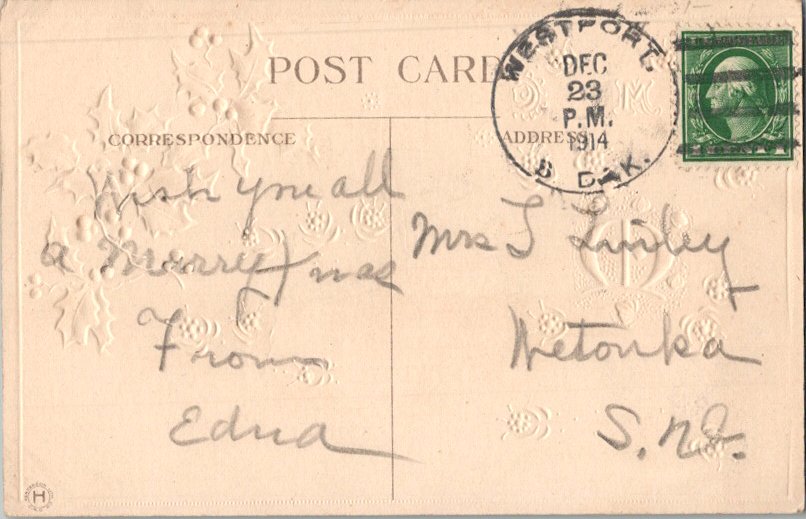 POST CARD
WESTPORT.
DEC
23
P.M.
1914
S DAK.
CORRESPONDENCE
ADDRESS
Wish you all
a Merry Xmas
From
Edna
Mrs
Wetonka
S.
H